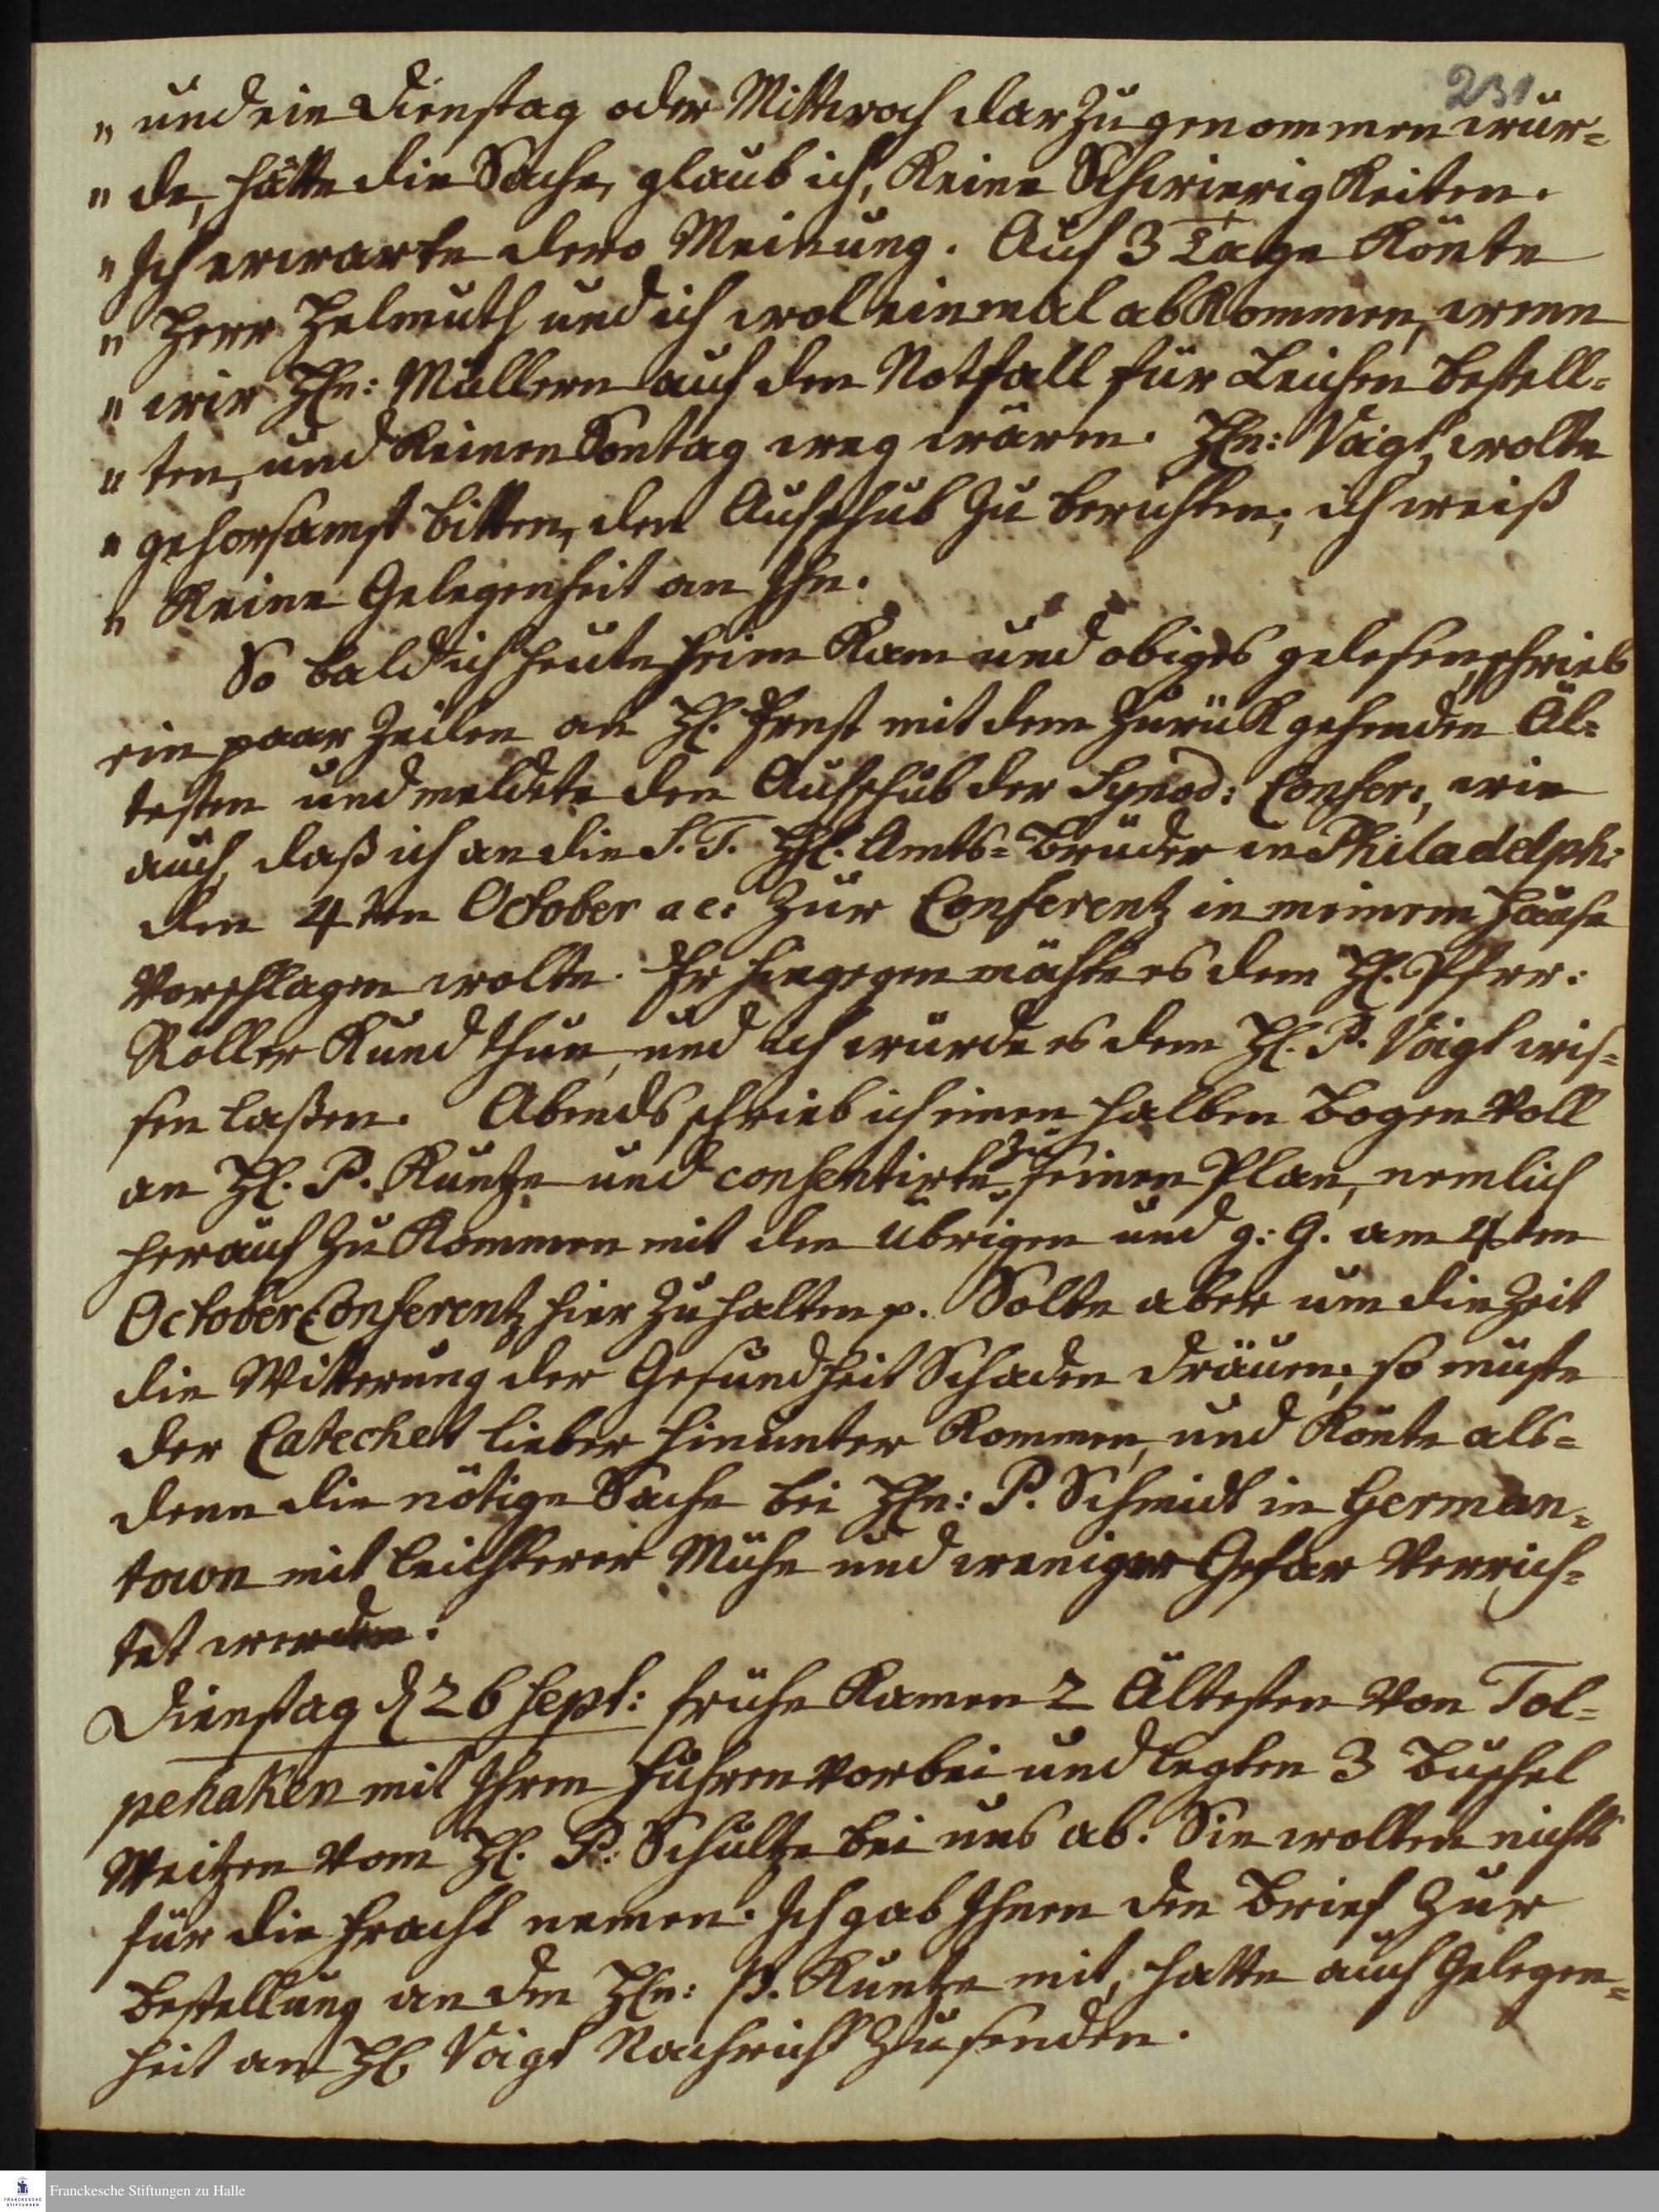 231
" und ein Dienstag oder Mittwoch darzu genommen wür-
" de, hätte die Sache, glaub ich, keine Schwierigkeiten.
" Ich erwarte dero Meinung. Auf 3 Tage könte
" Herr Helmuth und ich wol einmal abkommen, wenn
" wir Hhn: Müllern auf den Notfall für Leichen bestell-
" ten, und keinen Sontag weg wären. Hhn: Voigt, wolte
" gehorsamst bitten, den Aufschub zu berichten; ich weiß
" keine Gelegenheit an Ihn.
So bald ich heute heim kam und obiges gelesen, schrieb
ein paar Zeilen an H. Ernst mit dem zurückgehenden Äl-
testen und meldete den Aufschub der Synod: Confer:, wie
auch, daß ich an die S. T. HH. Amts-Brüder in Philadelph:
den 4ten October a c: zur Conferentz in meinem Hause
vorschlagen wolte. Er hingegen möchte es dem H. Pfrr:
Röller kund thun, und ich würde es dem H. P. Voigt wis-
sen laßen. Abends schrieb ich einen halben Bogen voll
an H. P. Kuntze und consentirte zu seinen Plan, nemlich
herauf zu kommen mit den übrigen und g: G. am 4ten
October Conferentz hier zu halten p. Solte aber um die Zeit
die Witterung der Gesundheit Schaden dräuen, so müste
der Catechet lieber hinunter kommen, und könte als-
denn die nötige Sache bei Hhn: P. Schmidt in German-
town mit leichterer Mühe und weniger Gefar verrich-
tet werden.
Dienstag d 26 Sept: frühe kamen 2 Ältesten von Tol-
pehaken mit Ihren Fuhren vorbei und legten 3 Buschel
Weitzen vom H. P. Schultze bei uns ab. Sie wolten nichts
für die Fracht nemen. Ich gab Ihnen den Brief zur
Bestellung an den Hhn: P. Kuntze mit, hatte auch Gelegen-
heit an H. Voigt Nachricht zu senden.
Franckesche Stiftungen zu Halle